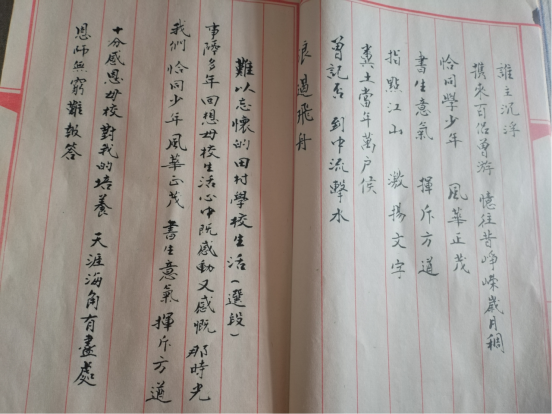 誰主沉浮
攜來百侶曾游 憶往昔崢嶸歲月稠
恰同學少年 風華正茂
書生意氣 揮斥方遒
指點江山 激揚文字
糞土當年萬戶侯
曾記否 到中流擊水
浪遏飛舟
難以忘懷的田村學校生活(選段)
事隔多年回想母校生活心中既感動又感慨 那時光
我們 恰同少年 風華正茂 書生意氣 揮斥方遒
十分感恩母校對我的培養 天涯海角有盡處
恩師無窮難報答